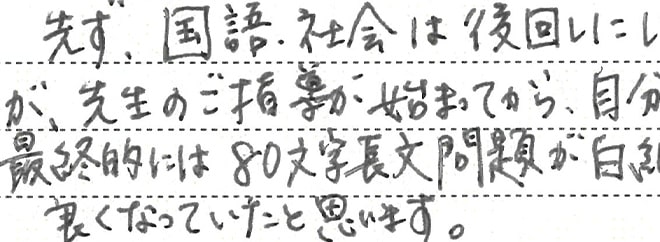 先ず、国語・社会は後回しにし
が、先生のご指導が始まってから、自分
最終的には80文字長文問題が白紙
良くなっていたと思います。